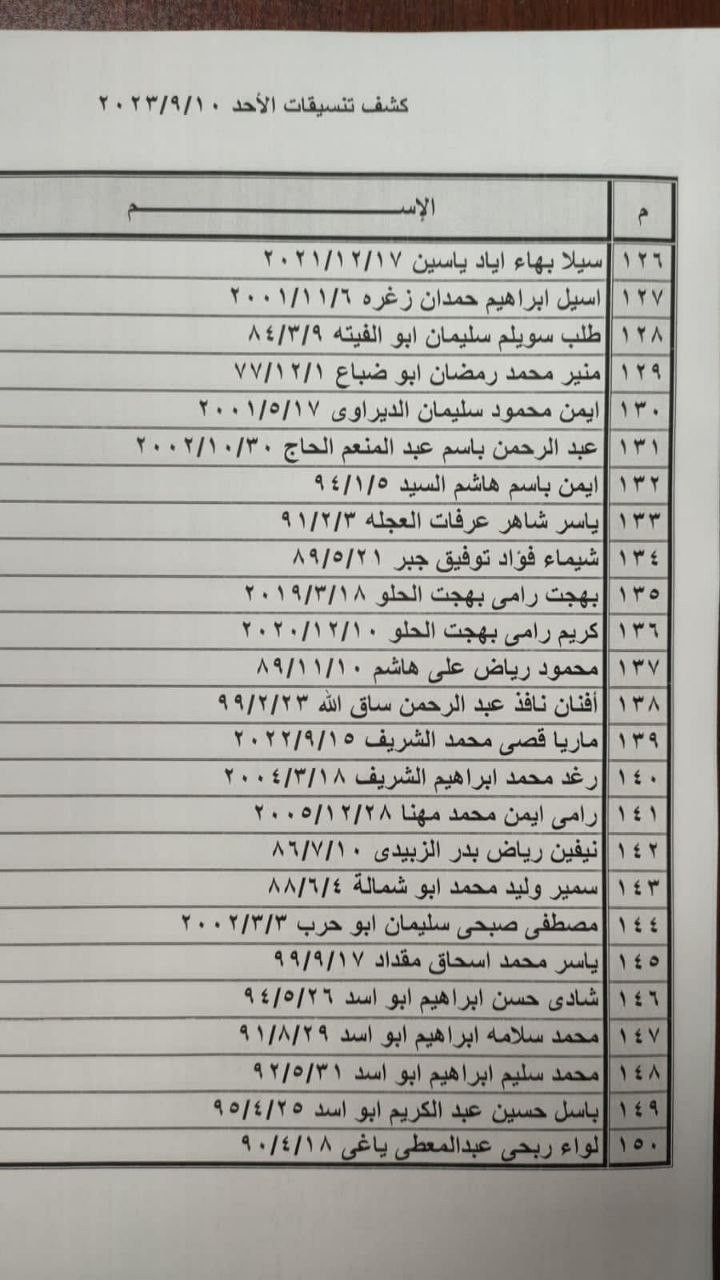 كشف تنسيقات الأحد ٢٠٢٣/٩/١٠
م الإســــــــــم
١٢٦ سيلا بهاء اياد ياسين ٢٠٢١/١٢/١٧
١٢٧ اسيل ابراهيم حمدان زغره ٢٠٠١/١١/٦
١٢٨ طلب سويلم سليمان ابو الفيته ٨٤/٣/٩
١٢٩ منير محمد رمضان ابو ضباع ٧٧/١٢/١
١٣٠ ايمن محمود سليمان الديراوى ٢٠٠١/٥/١٧
١٣١ عبد الرحمن باسم عبد المنعم الحاج ٢٠٠٢/١٠/٣٠
١٣٢ ايمن باسم هاشم السيد ٩٤/١/٥
١٣٣ ياسر شاهر عرفات العجله ٩١/٢/٣
١٣٤ شيماء فؤاد توفيق جبر ٨٩/٥/٢١
١٣٥ بهجت رامى بهجت الحلو ٢٠١٩/٣/١٨
١٣٦ كريم رامى بهجت الحلو ٢٠٢٠/١٢/١٠
١٣٧ محمود رياض على هاشم ٨٩/١١/١٠
١٣٨ أفنان نافذ عبد الرحمن ساق الله ٩٩/٢/٢٣
١٣٩ ماريا قصى محمد الشريف ٢٠٢٢/٩/١٥
١٤٠ رغد محمد ابراهيم الشريف ٢٠٠٤/٣/١٨
١٤١ رامى ايمن محمد مهنا ٢٠٠٥/١٢/٢٨
١٤٢ نيفين رياض بدر الزبيدى ٨٦/٧/١٠
١٤٣ سمير وليد محمد ابو شمالة ٨٨/٦/٤
١٤٤ مصطفى صبحى سليمان ابو حرب ٢٠٠٢/٣/٣
١٤٥ ياسر محمد اسحاق مقداد ٩٩/٩/١٧
١٤٦ شادى حسن ابراهيم ابو اسد ٩٤/٥/٢٦
١٤٧ محمد سلامه ابراهيم ابو اسد ٩١/٨/٢٩
١٤٨ محمد سليم ابراهيم ابو اسد ٩٢/٥/٣١
١٤٩ باسل حسين عبد الكريم ابو اسد ٩٥/٤/٢٥
١٥٠ لواء ربحى عبدالمعطى ياغى ٩٠/٤/١٨